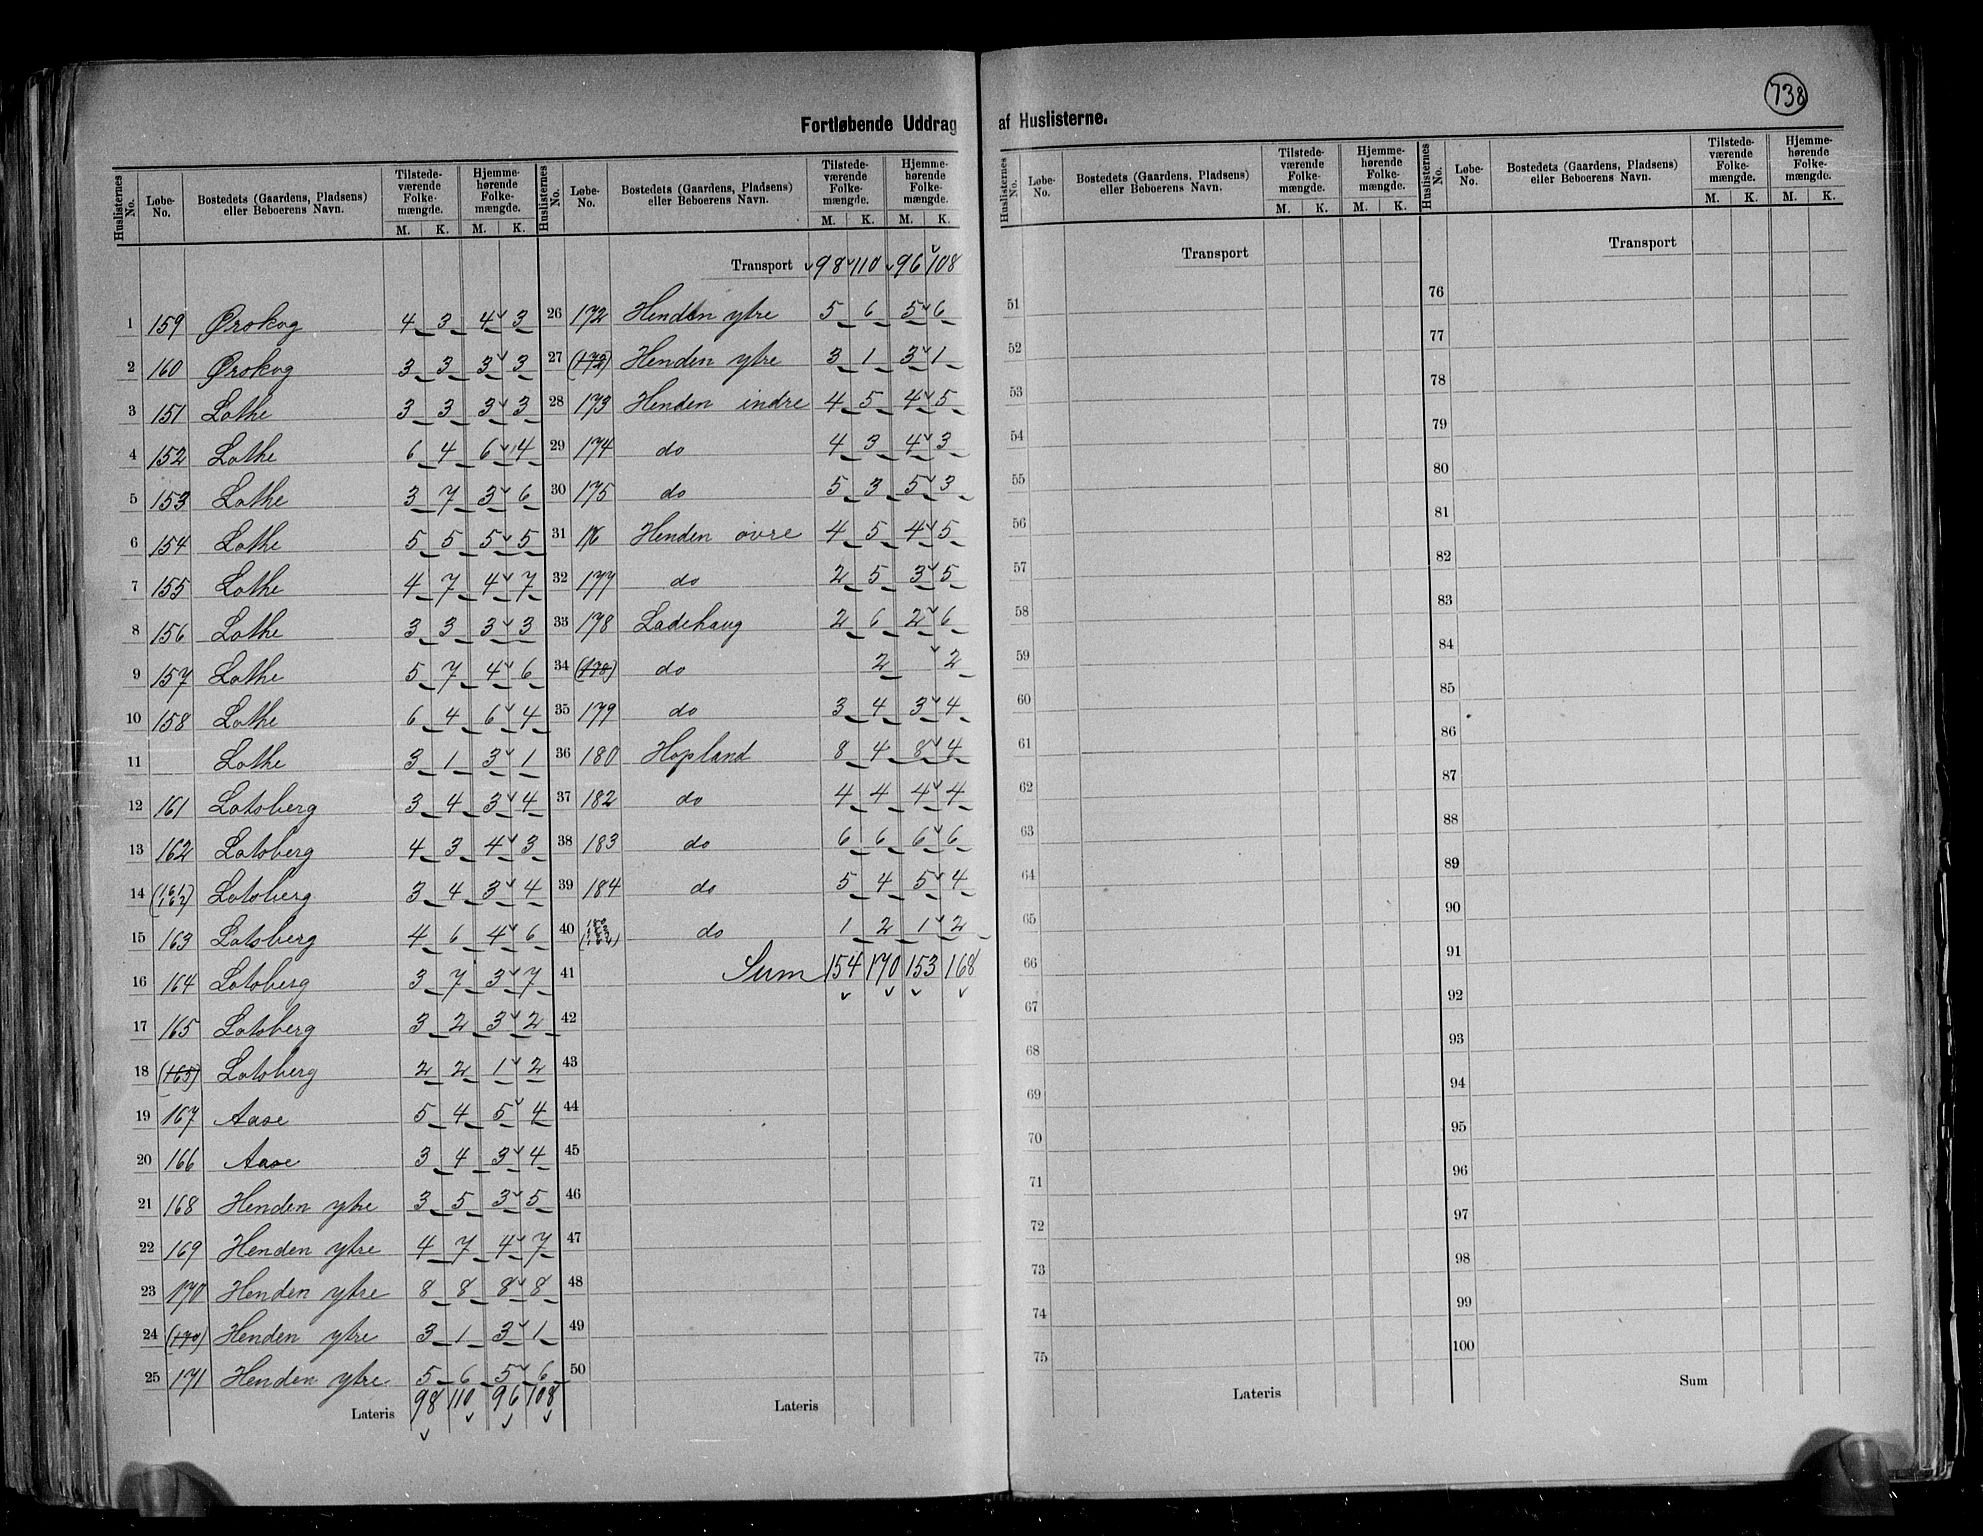 738
Fortløbende Uddrag af Huslisterne.
Huslisternes No. Løbe-No. Bostedets (Gaardens, Pladsens) eller Beboerens Navn. Tilstedeværende Folkemængde. M. K. Hjemmehørende Folkemængde. M. K.
1 159 Ørokog 4 3 4 3
2 160 Ørokog 3 3 3 3
3 151 Lothe 3 3 3 3
4 152 Lothe 6 4 6 4
5 153 Lothe 3 7 3 6
6 154 Lothe 5 5 5 5
7 155 Lothe 4 7 4 7
8 156 Lothe 3 3 3 3
9 157 Lothe 5 7 4 6
10 158 Lothe 6 4 6 4
11 Lothe 3 1 3 1
12 161 Lotsberg 3 4 3 4
13 162 Lotsberg 4 3 4 3
14 (161 162) Lotsberg 3 4 3 4
15 163 Lotsberg 4 6 4 6
16 164 Lotsberg 3 7 3 7
17 165 Lotsberg 3 2 3 2
18 (165) Lotsberg 2 2 1 2
19 167 Aase 5 4 5 4
20 166 Aase 3 4 3 4
21 168 Henden ytre 3 5 3 5
22 169 Henden ytre 4 7 4 7
23 170 Henden ytre 8 8 8 8
24 (170) Henden ytre 3 1 3 1
25 171 Henden ytre 5 6 5 6
Lateris 98 110 96 108
Huslisternes No. Løbe-No. Bostedets (Gaardens, Pladsens) eller Beboerens Navn. Tilstedeværende Folkemængde. M. K. Hjemmehørende Folkemængde. M. K.
Transport 98 110 96 108
26 172 Henden ytre 5 6 5 6
27 (172) Henden ytre 3 1 3 1
28 173 Henden indre 4 5 4 5
29 174 do 4 3 4 3
30 175 do 5 3 5 3
31 176 Henden øvre 4 5 4 5
32 177 do 2 5 3 5
33 178 Ladehaug 2 6 2 6
34 (178) do 2 2
35 179 do 3 4 3 4
36 180 Hopland 8 4 8 4
37 182 do 4 4 4 4
38 183 do 6 6 6 6
39 184 do 5 4 5 4
40 do 1 2 1 2
41 Sum 154 170 153 168
42
43
44
45
46
47
48
49
50
Lateris
Huslisternes No. Løbe-No. Bostedets (Gaardens, Pladsens) eller Beboerens Navn. Tilstedeværende Folkemængde. M. K. Hjemmehørende Folkemængde. M. K.
Transport
51
52
53
54
55
56
57
58
59
60
61
62
63
64
65
66
67
68
69
70
71
72
73
74
75
Lateris
Huslisternes No. Løbe-No. Bostedets (Gaardens, Pladsens) eller Beboerens Navn. Tilstedeværende Folkemængde. M. K. Hjemmehørende Folkemængde. M. K.
Transport
76
77
78
79
80
81
82
83
84
85
86
87
88
89
90
91
92
93
94
95
96
97
98
99
100
Sum